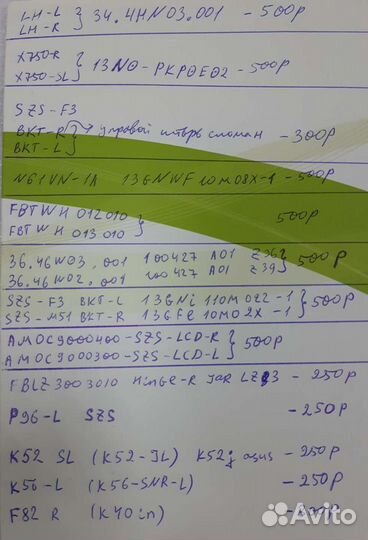 LH-L
LH-R } 34.4HN03.001 - 500р
X750-R
X750-SL } 13N0-PKP0E02 - 500р
SZS-F3
BKT-R → у правой штырь сломан - 300р
BKT-L
N61VN-1A 13GNWF10M08X-1 - 500р
FBTWH012010
FBTWH013010 } 500р
36.46W03.001 100427 A01 Z36
36.46W02.001 100427 A01 Z39 } 500р
SZS-F3 BKT-L 13GNi110M022-1
SZS-M51 BKT-R 13GFE10M02X-1 } 500р
AMOC9000400-SZS-LCD-R
AMOC9000300-SZS-LCD-L } 500р
FBLZ3003010 Hinge-R JAR LZ3 - 250р
P96-L SZS - 250р
K52 SL (K52-JL) K52j asus - 250р
K56-L (K56-SNR-L) - 250р
F82 R (K40in)
Avito